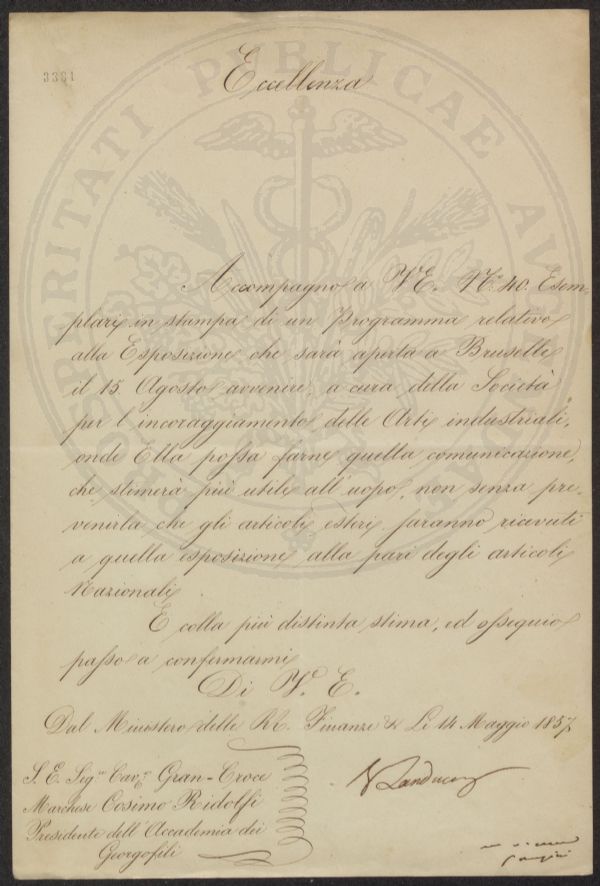 3381
Eccellenza
Accompagno a V. E. N.° 40. Esem-
plari in stampa di un Programma relativo
alla Esposizione che sarà aperta a Bruselle
il 15. Agosto avvenire, a cura della Società
per l'incoraggiamento delle Arti industriali,
onde Ella possa farne quella comunicazione,
che stimerà più utile all'uopo, non senza pre-
venirla che gli articoli esteri saranno ricevuti
a quella esposizione alla pari degli articoli
Nazionali
E colla più distinta stima, ed ossequio
passo a confermarmi
Di V. E.
Dal Ministero delle RR. Finanze & Li 14 Maggio 1857
S. E. Sig.r Cav.re Gran-Croce
Marchese Cosimo Ridolfi
Presidente dell'Accademia dei
Georgofili
Landucci
PROSPERITATI PUBLICAE AUGENDAE